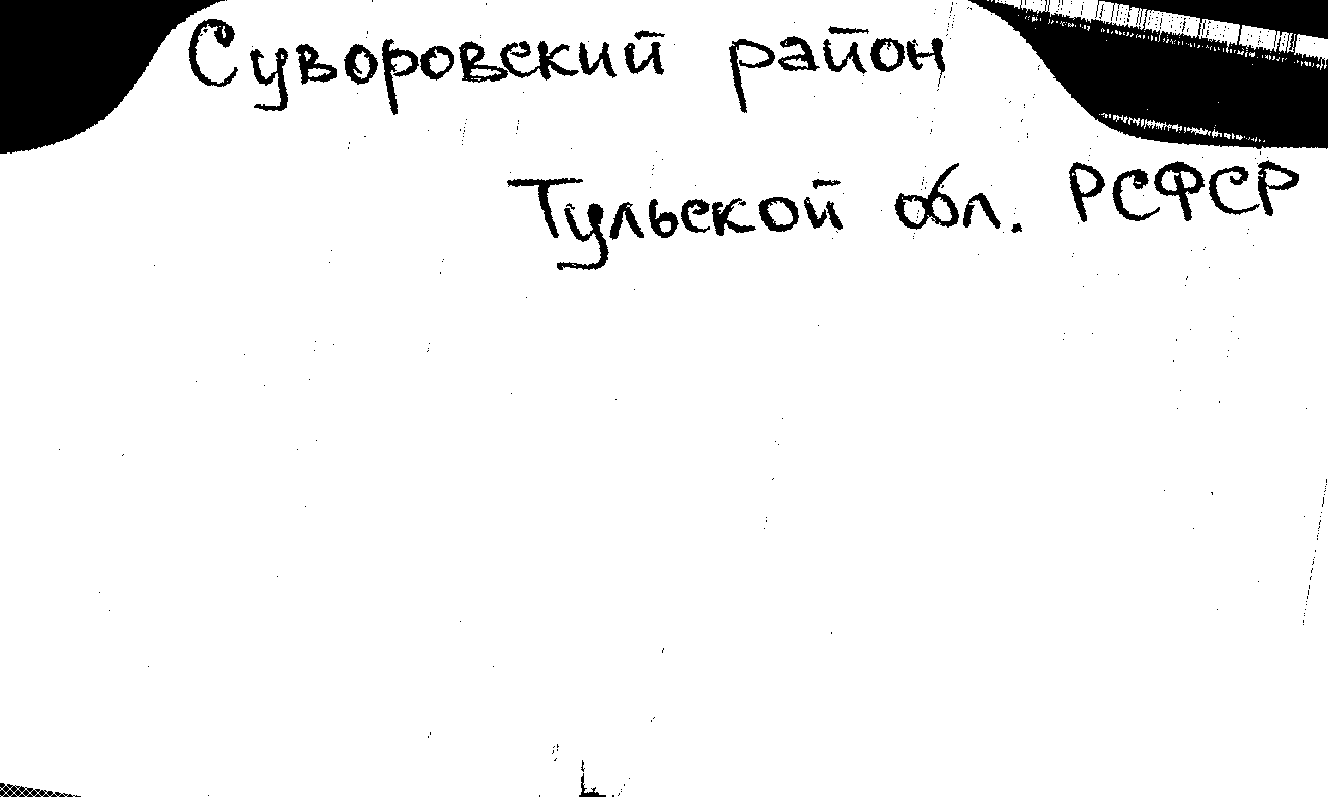 Суворовский район
Тульской обл. РСФСР